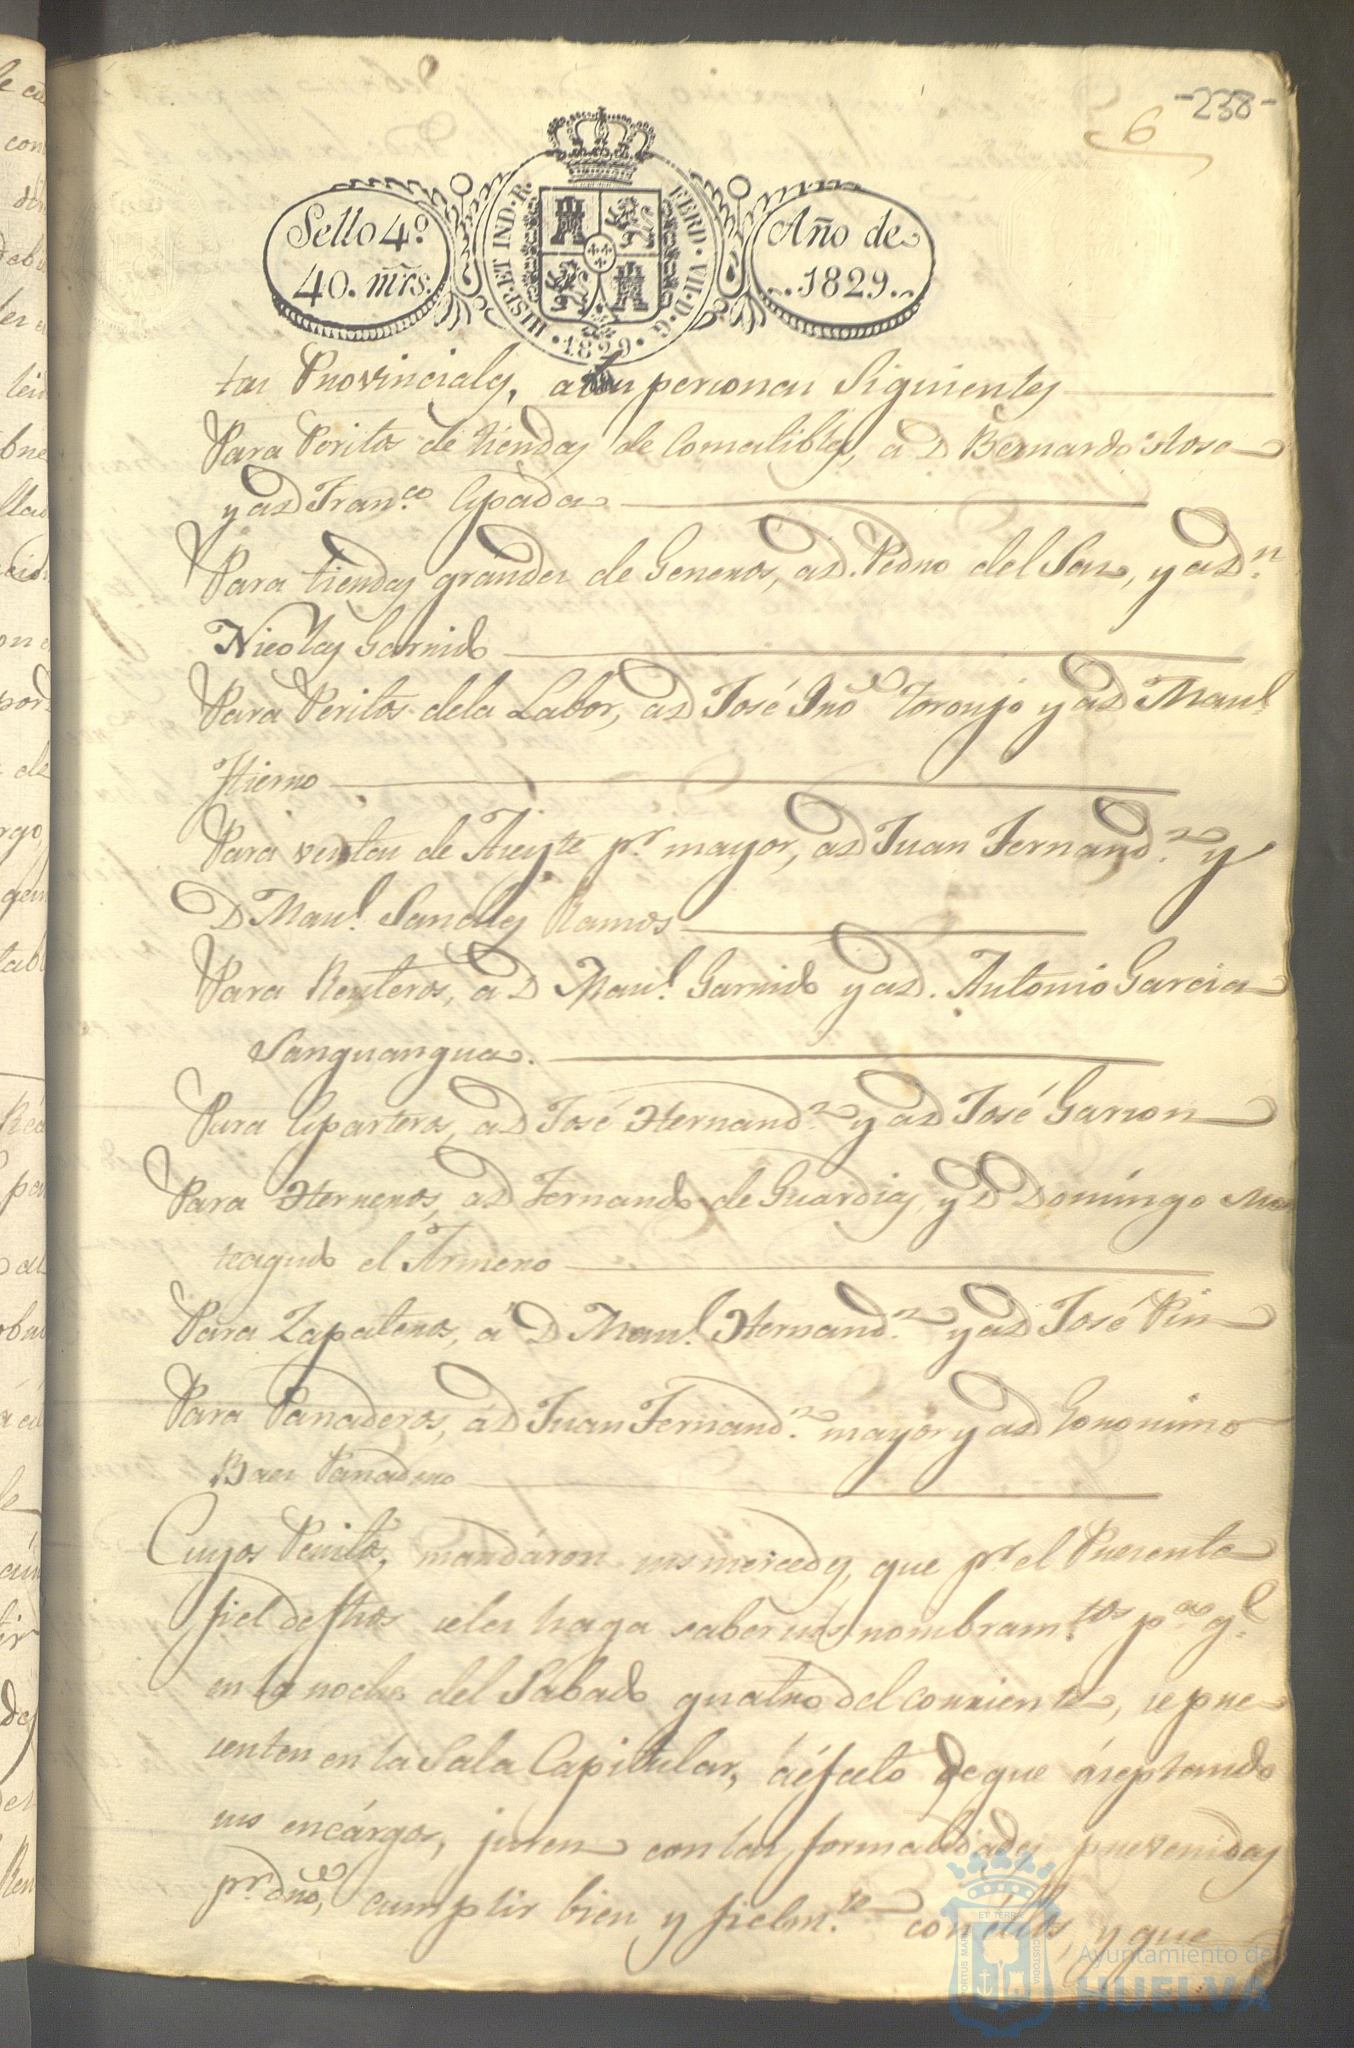 -238-
6
Sello 4.º
40. mrs.
HISP. ET IND. R.
FERD. VII. D. G.
1829
Año de
1829.
tas Provinciales, a las personas siguientes
Para Peritos de tiendas de Comestibles, a D Bernardo
y a D Fran.co Espada
Para tiendas grandes de Generos, a D. Pedro del Saz, y a D.n
Nicolas Garrido
Para Peritos dela Labor, a D José Ino Toronjo y a D Man.l
Hierro
Para ventas de Aseyte p.r mayor, a D Juan Fernand.z y
D Man.l Sanches Ramos
Para Renteros, a D Man.l Garrido y a D. Antonio Garcia
Sanguangua.
Para Esparteros, a D José Hernand.z y a D José Garzon
Para Herreros, a D Fernando de Guardias, y D Domingo Mon
teagudo el Armero
Para Zapateros, á D Man.l Hernand.z y a D José Pin
Para Panaderos, á D Juan Fernand.z mayor y a D Geronimo
Baes Panadero
Cuyos Peritos, mandáron sus mercedes, que p.r el Presente
fiel de fhos se les haga saber sus nombram.tos p.a q.e
en la noche del Sabado quatro del corriente, se pre
senten en la Sala Capitular, á éfecto de que áseptando
sus encárgos, juren con las formalidades prevenidas
p.r dro, cumplir bien y fielm.te con éllos, y que
PORTUS MARIS ET TERRAE CUSTODIA
Ayuntamiento de
HUELVA